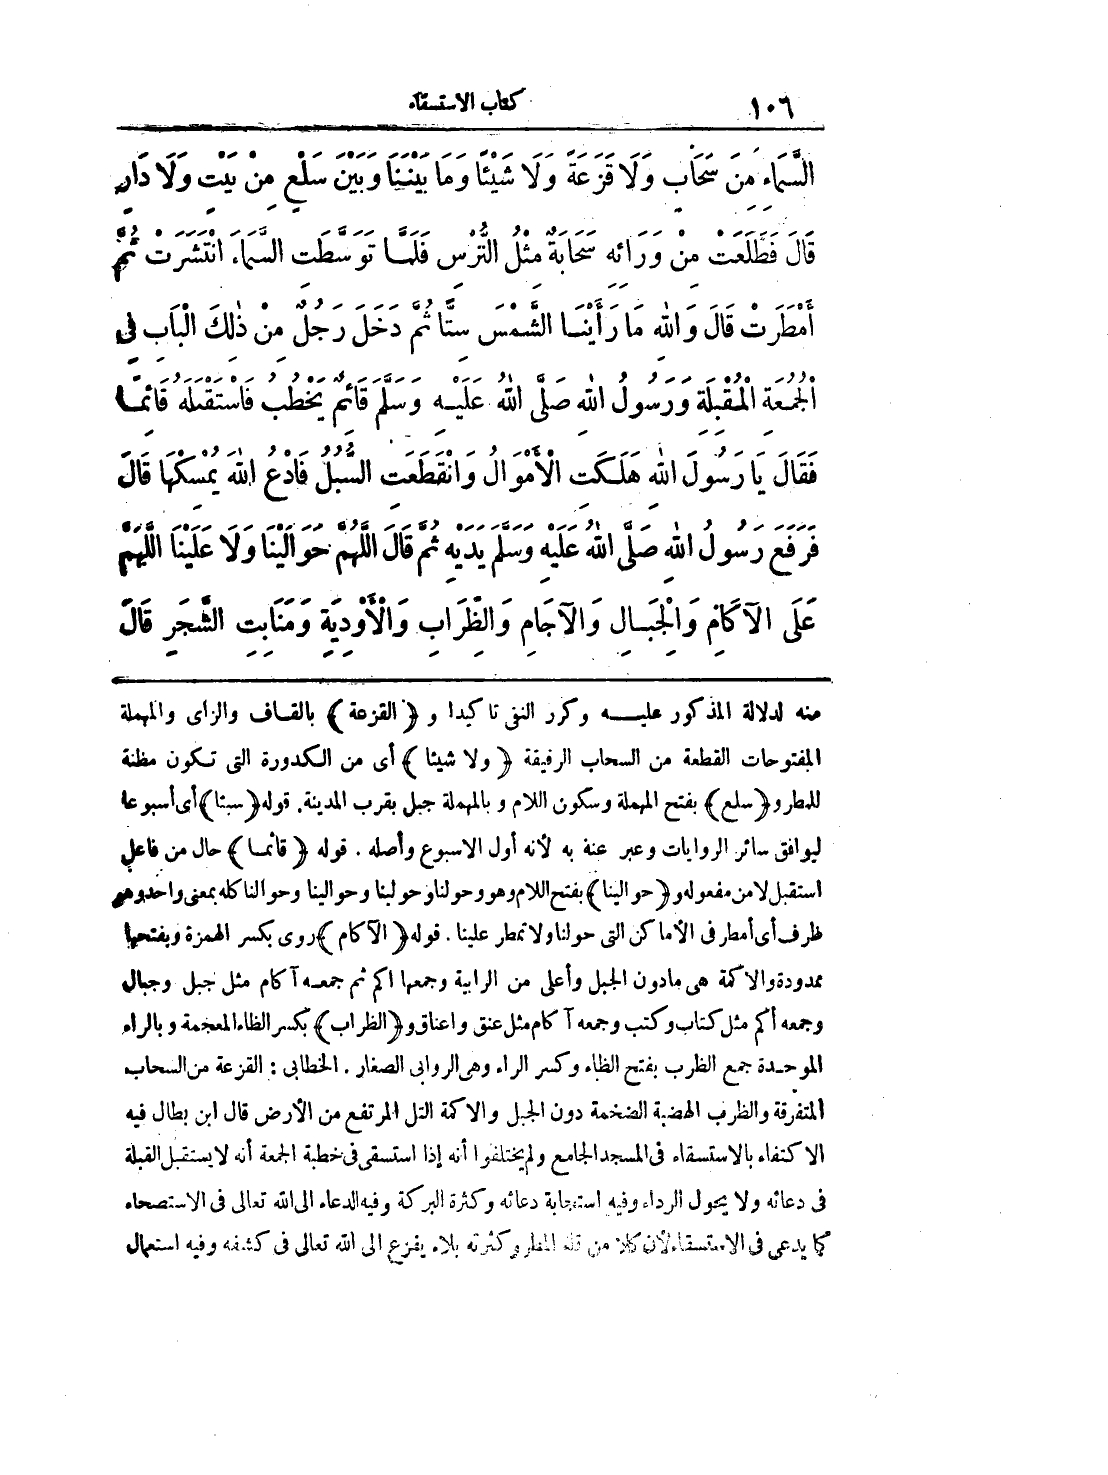 ١٠٦ كتاب الاستسقاء
السَّمَاءِ مِنَ سَحَابٍ وَلَا قَزَعَةً وَلَا شَيْئًا وَمَا بَيْنَنَا وَبَيْنَ سَلْعٍ مِنْ بَيْتٍ وَلَا دَارٍ
قَالَ فَطَلَعَتْ مِنْ وَرَائِهِ سَحَابَةٌ مِثْلُ التُّرْسِ فَلَمَّا تَوَسَّطَتِ السَّمَاءَ انْتَشَرَتْ ثُمَّ
أَمْطَرَتْ قَالَ وَاللهِ مَا رَأَيْنَا الشَّمْسَ سِتًّا ثُمَّ دَخَلَ رَجُلٌ مِنْ ذٰلِكَ الْبَابِ فِي
الْجُمُعَةِ الْمُقْبِلَةِ وَرَسُولُ اللهِ صَلَّى اللهُ عَلَيْهِ وَسَلَّمَ قَائِمٌ يَخْطُبُ فَاسْتَقْبَلَهُ قَائِمًا
فَقَالَ يَا رَسُولَ اللهِ هَلَكَتِ الْأَمْوَالُ وَانْقَطَعَتِ السُّبُلُ فَادْعُ اللهَ يُمْسِكْهَا قَالَ
فَرَفَعَ رَسُولُ اللهِ صَلَّى اللهُ عَلَيْهِ وَسَلَّمَ يَدَيْهِ ثُمَّ قَالَ اللَّهُمَّ حَوَالَيْنَا وَلَا عَلَيْنَا اللَّهُمَّ
عَلَى الآكَامِ وَالْجِبَالِ وَالآجَامِ وَالظِّرَابِ وَالْأَوْدِيَةِ وَمَنَابِتِ الشَّجَرِ قَالَ
منه لدلالة المذكور عليه وكرر النفي تأكيدا و ﴿القزعة﴾ بالقاف والزاى والمهملة
المفتوحات القطعة من السحاب الرقيقة ﴿ولا شيئا﴾ أى من الكدورة التى تكون مظنة
للمطر و﴿سلع﴾ بفتح المهملة وسكون اللام وبالمهملة جبل بقرب المدينة. قوله ﴿سبتا﴾ أى أسبوعا
ليوافق سائر الروايات وعبر عنه به لأنه أول الاسبوع وأصله . قوله ﴿قائما﴾ حال من فاعل
استقبل لا من مفعوله و﴿حوالينا﴾ بفتح اللام وهو وحولنا وحولينا وحوالينا وحوالنا كله بمعنى واحد وهو
ظرف أى أمطر فى الأماكن التى حولنا ولا تمطر علينا . قوله ﴿الآكام﴾ روى بكسر الهمزة وبفتحها
ممدودة والاكمة هى مادون الجبل وأعلى من الرابية وجمعها اكم ثم جمعه آكام مثل جبل وجبال
وجمعه أكم مثل كتاب وكتب وجمعه آكام مثل عنق واعناق و﴿الظراب﴾ بكسر الظاء المعجمة وبالراء
الموحدة جمع الظرب بفتح الظاء وكسر الراء وهى الروابى الصغار . الخطابى : القزعة من السحاب
المتفرقة والظرب الهضبة الضخمة دون الجبل والاكمة التل المرتفع من الأرض قال ابن بطال فيه
الاكتفاء بالاستسقاء فى المسجد الجامع ولم يختلفوا أنه إذا استسقى فى خطبة الجمعة أنه لا يستقبل القبلة
فى دعائه ولا يحول الرداء وفيه استجابة دعائه وكثرة البركة وفيه الدعاء الى الله تعالى فى الاستصحاء
كما يدعى فى الاستسقاء لأن كلا من قلة المطر وكثرته بلاء يفزع الى الله تعالى فى كشفه وفيه استعمال